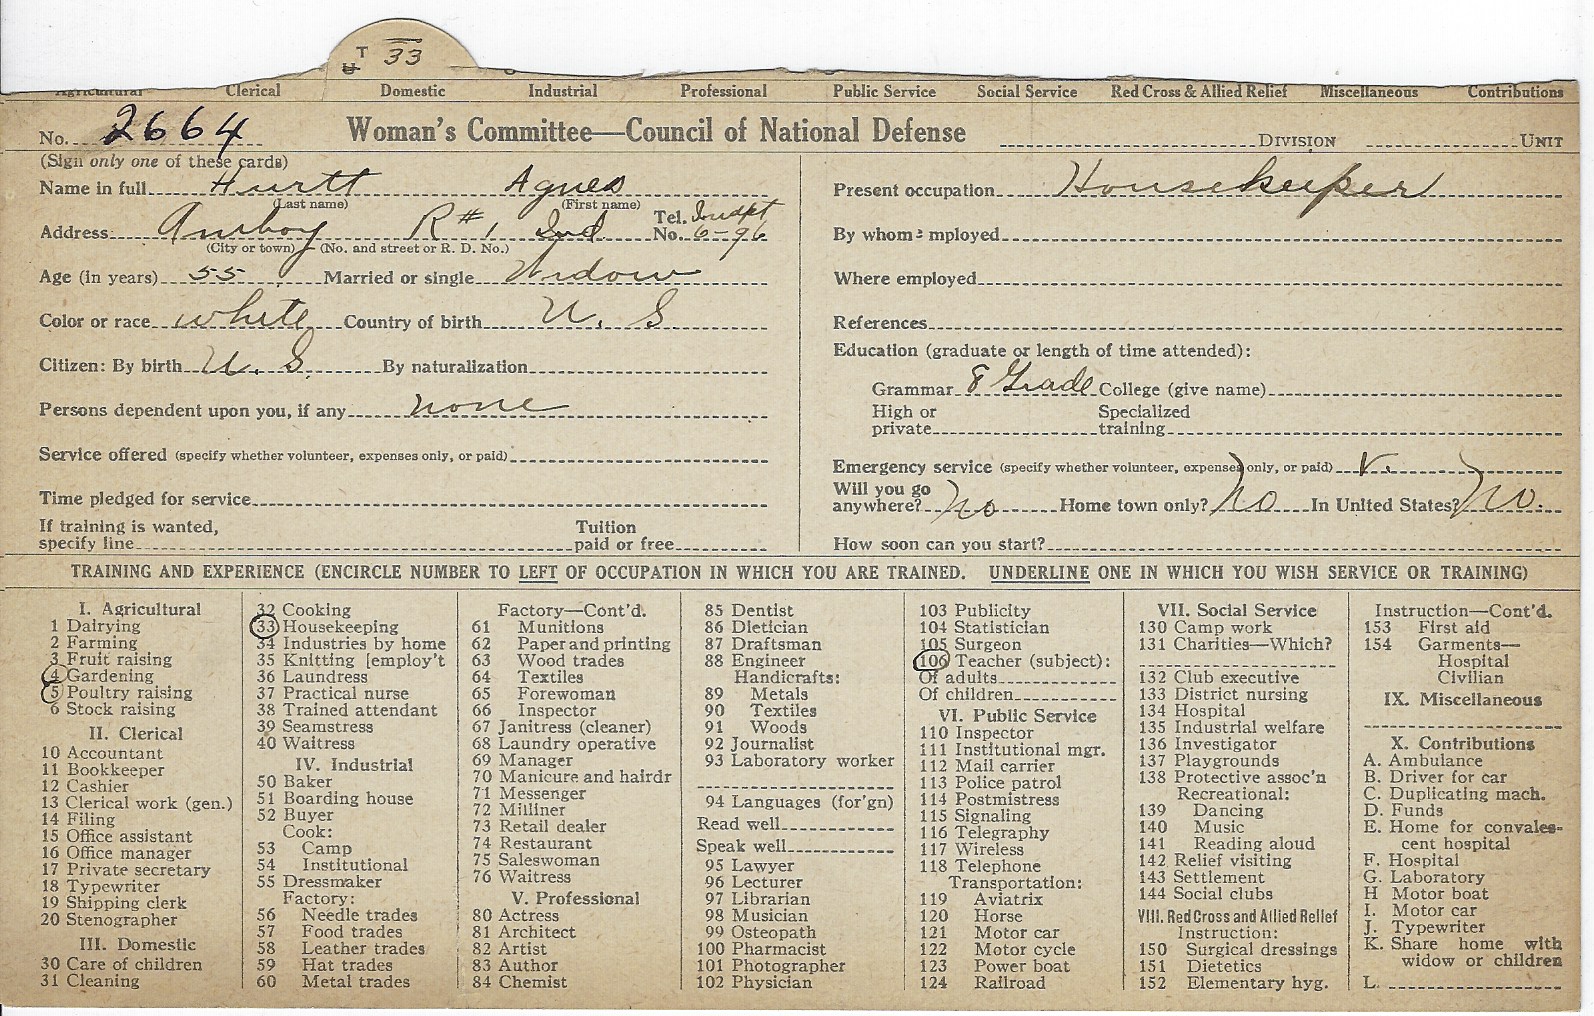 T 33
U
Agricultural Clerical Domestic Industrial Professional Public Service Social Service Red Cross & Allied Relief Miscellaneous Contributions
No. 2664 Woman's Committee—Council of National Defense DIVISION UNIT
(Sign only one of these cards)
Name in full Hurtt Agnes
(Last name) (First name)
Address: Amboy R# 1 Ind. Tel. No. Indpt 6-96
(City or town) (No. and street or R. D. No.)
Age (in years) 55 Married or single Widow
Color or race white Country of birth U. S
Citizen: By birth U. S. By naturalization
Persons dependent upon you, if any none
Service offered (specify whether volunteer, expenses only, or paid)
Time pledged for service
If training is wanted, specify line Tuition paid or free
Present occupation Housekeeper
By whom employed
Where employed
References
Education (graduate or length of time attended):
Grammar 8 Grade College (give name)
High or private Specialized training
Emergency service (specify whether volunteer, expenses only, or paid) V.
Will you go anywhere? No Home town only? No In United States? No.
How soon can you start?
TRAINING AND EXPERIENCE (ENCIRCLE NUMBER TO LEFT OF OCCUPATION IN WHICH YOU ARE TRAINED. UNDERLINE ONE IN WHICH YOU WISH SERVICE OR TRAINING)
I. Agricultural
1 Dairying
2 Farming
3 Fruit raising
4 Gardening
5 Poultry raising
6 Stock raising
II. Clerical
10 Accountant
11 Bookkeeper
12 Cashier
13 Clerical work (gen.)
14 Filing
15 Office assistant
16 Office manager
17 Private secretary
18 Typewriter
19 Shipping clerk
20 Stenographer
III. Domestic
30 Care of children
31 Cleaning
32 Cooking
33 Housekeeping
34 Industries by home
35 Knitting [employ't
36 Laundress
37 Practical nurse
38 Trained attendant
39 Seamstress
40 Waitress
IV. Industrial
50 Baker
51 Boarding house
52 Buyer
Cook:
53 Camp
54 Institutional
55 Dressmaker
Factory:
56 Needle trades
57 Food trades
58 Leather trades
59 Hat trades
60 Metal trades
Factory—Cont'd.
61 Munitions
62 Paper and printing
63 Wood trades
64 Textiles
65 Forewoman
66 Inspector
67 Janitress (cleaner)
68 Laundry operative
69 Manager
70 Manicure and hairdr
71 Messenger
72 Milliner
73 Retail dealer
74 Restaurant
75 Saleswoman
76 Waitress
V. Professional
80 Actress
81 Architect
82 Artist
83 Author
84 Chemist
85 Dentist
86 Dietician
87 Draftsman
88 Engineer
Handicrafts:
89 Metals
90 Textiles
91 Woods
92 Journalist
93 Laboratory worker
94 Languages (for'gn)
Read well
Speak well
95 Lawyer
96 Lecturer
97 Librarian
98 Musician
99 Osteopath
100 Pharmacist
101 Photographer
102 Physician
103 Publicity
104 Statistician
105 Surgeon
106 Teacher (subject):
Of adults
Of children
VI. Public Service
110 Inspector
111 Institutional mgr.
112 Mail carrier
113 Police patrol
114 Postmistress
115 Signaling
116 Telegraphy
117 Wireless
118 Telephone
Transportation:
119 Aviatrix
120 Horse
121 Motor car
122 Motor cycle
123 Power boat
124 Railroad
VII. Social Service
130 Camp work
131 Charities—Which?
132 Club executive
133 District nursing
134 Hospital
135 Industrial welfare
136 Investigator
137 Playgrounds
138 Protective assoc'n
Recreational:
139 Dancing
140 Music
141 Reading aloud
142 Relief visiting
143 Settlement
144 Social clubs
VIII. Red Cross and Allied Relief
Instruction:
150 Surgical dressings
151 Dietetics
152 Elementary hyg.
Instruction—Cont'd.
153 First aid
154 Garments—
Hospital
Civilian
IX. Miscellaneous
X. Contributions
A. Ambulance
B. Driver for car
C. Duplicating mach.
D. Funds
E. Home for convales-
cent hospital
F. Hospital
G. Laboratory
H Motor boat
I. Motor car
J. Typewriter
K. Share home with
widow or children
L.